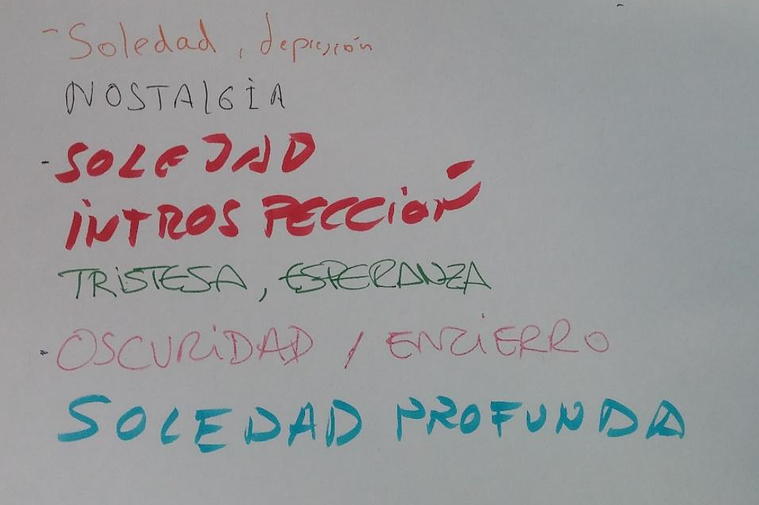 - Soledad, depresión
NOSTALGIA
- SOLEDAD
INTROSPECCIÓN
TRISTESA, ESPERANZA
- OSCURIDAD / ENZIERRO
SOLEDAD PROFUNDA